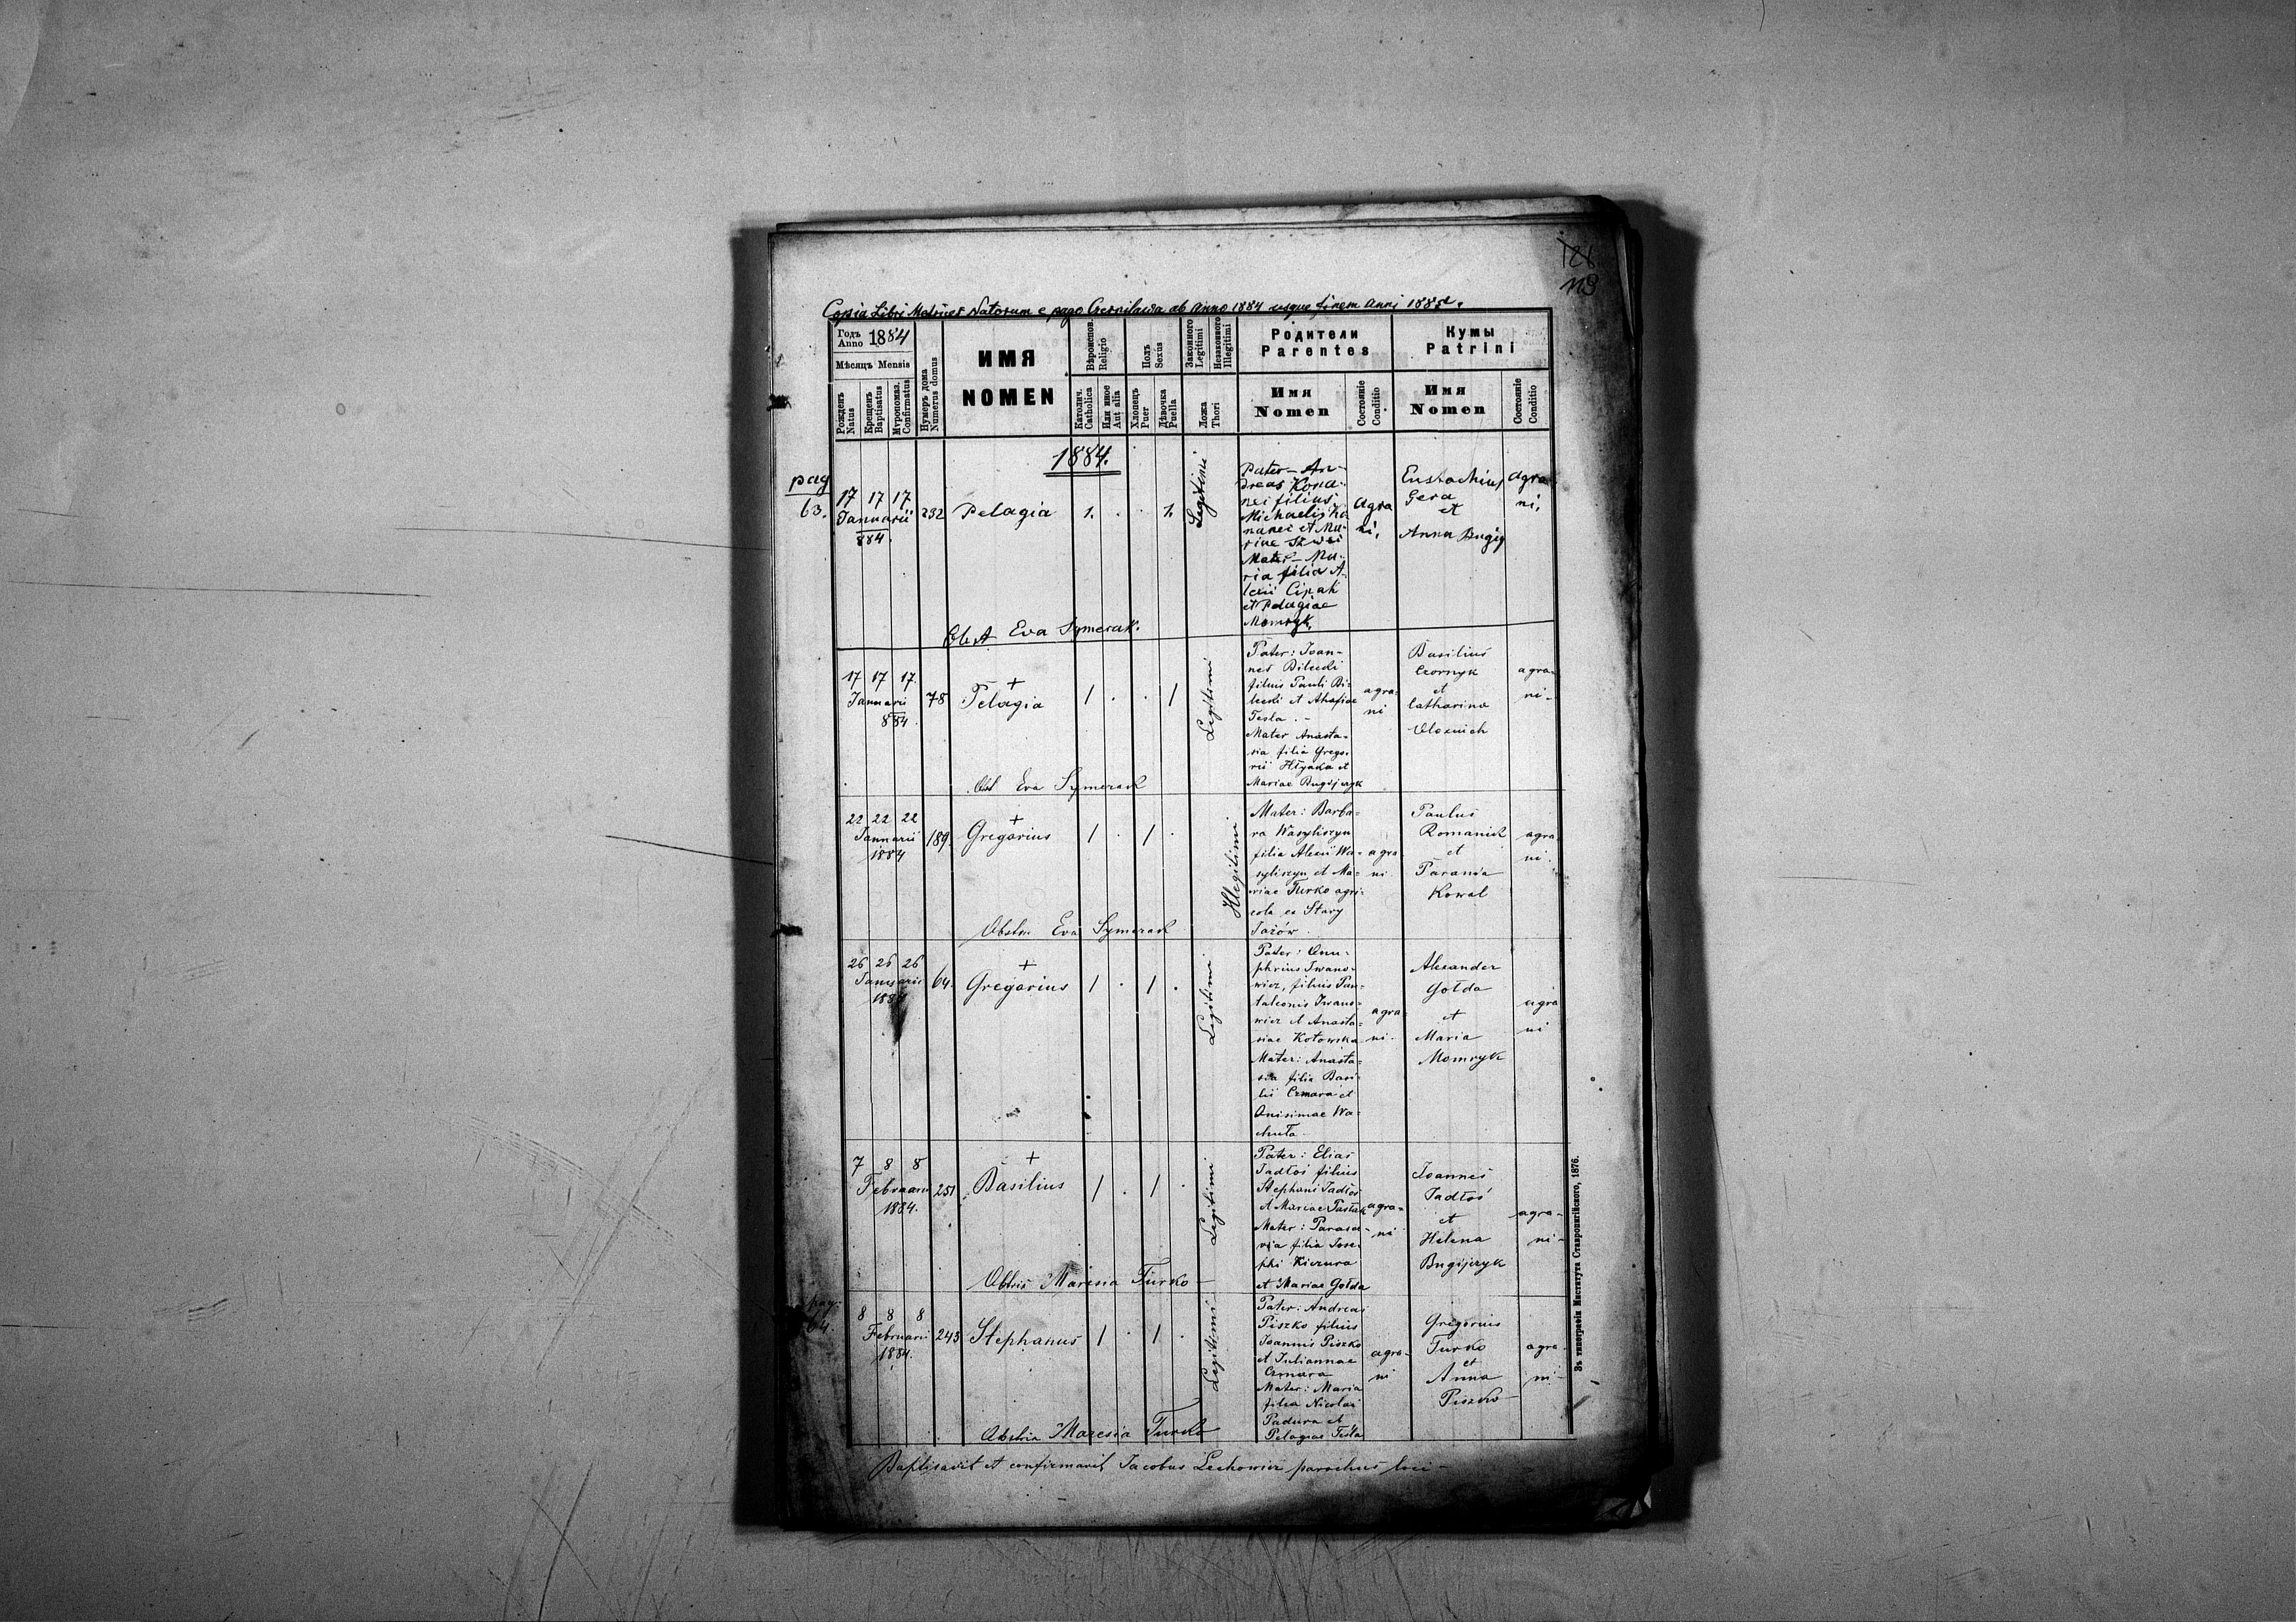 128
113
Copia Libri Metrices Natorum e pago Czernilawa ab Anno 1884 usque finem Anni 1885
Годъ Anno 1884
Мѣсяцъ Mensis
Рожденъ Natus
Крещенъ Baptisatus
Мѵропомаз. Confirmatus
Нумеръ дома Numerus domus
ИМЯ
NOMEN
Вѣроиспов. Religio
Католич. Catholica
Или иное Aut alia
Полъ Sexus
Хлопецъ Puer
Дѣвочка Puella
Законного Legitimi
Незаконного Illegitimi
Ложа Thori
Родители
Parentes
Имя
Nomen
Состояніе
Conditio
Кумы
Patrini
Имя
Nomen
Состояніе
Conditio
1884.
pag
63.
17 17 17
Januarii
884.
232
Pelagia
1. . . 1.
Legitimi
Pater – An-
dreas Kona-
nec filius
Michaelis Ko-
nanec et Ma-
riae
Mater – Ma-
ria filia A-
lexii Cipak
et Pelagiae
Momryk.
agra
ni.
Eustachius
Gera
et
Anna
agra
ni.
Obst Eva Symerak.
17 17 17.
Januarii
884.
78
+
Pelagia
1 . . 1
Legitimi
Pater: Joan-
nes Bilecki
filius Pauli Bi-
lecki et Ahafiae
Tesla. –
Mater Anasta-
sia filia Grego-
rii Hłyaka et
Mariae Bugijczyk
agra-
ni
Basilius
Czornyk
et
Catharina
agra-
ni-
Obst Eva Symerak
22 22 22
Januarii
1884
189.
+
Gregorius
1 . 1 .
Illegitimi
Mater: Barba-
ra Wasyliszyn
filia Alexii Wa-
syliszyn et Ma-
riae Turko agri-
cola ex Stary
Jazów.
agra-
ni.
Paulus
Romanick
et
Parania
Kowal
agra-
ni.
Obstr. Eva Symerak
26 26 26
Januarii
1884
64.
+
Gregorius
1 . 1 .
Legitimi
Pater: Onu-
phrius Iwano-
wicz, filius Pan-
taleonis Iwano-
wicz et Anasta-
siae Kotowska
Mater: Anasta-
sia filia Basi-
lii Czmara et
Onisimae Wa-
chuta
agra-
ni.
Alexander
Gołda
et
Maria
Momryk
agra
ni
7 8 8
Februarii
1884.
251
+
Basilius
1 . 1 .
Legitimi
Pater: Elias
Jadłoś filius
Stephani Jadłoś
et Mariae
Mater: Parasce-
via filia Jose-
phi Kiczura
et Mariae Gołda
agra-
ni
Joannes
Jadłoś
et
Helena
Bugijczyk
agra-
ni-
Obstris Maresia Turko –
pag.
64.
8 8 8
Februarii
1884.
243
Stephanus
1 . 1 .
Legitimi
Pater: Andreas
Piszko filius
Joannis Piszko
et Juliannae
Czmara
Mater: Maria
filia Nicolai
Padura et
Pelagiae Tesla
agra-
ni
Gregorius
Turko
et
Anna
Piszko
agra-
ni-
Obstris Maresia Turko
Baptisavit et confirmavit Jacobus Lechowicz parochus loci –
Зъ типографіи Института Ставропигійского, 1876.